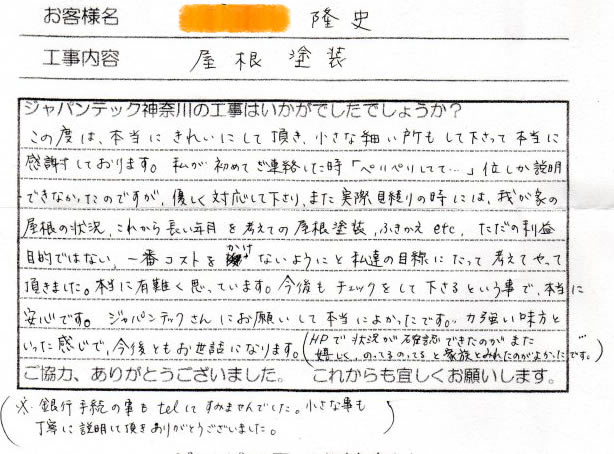 お客様名 隆史
工事内容 屋根塗装
ジャパンテック神奈川の工事はいかがでしたでしょうか？
この度は、本当にきれいにして頂き、小さな細い所もして下さって本当に
感謝しております。私が初めてご連絡した時「ペリペリしてて…」位しか説明
できなかったのですが、優しく対応して下さり、また実際見積りの時には、我が家の
屋根の状況、これから長い年月を考えての屋根塗装、ふきかえ etc, ただの利益
目的ではない、一番コストをかけないようにと私達の目線にたって考えてやって
頂きました。本当に有難く思っています。今後もチェックをして下さるという事で、本当に
安心です。ジャパンテックさんにお願いして本当によかったです。力強い味方と
いった感じで、今後ともお世話になります。(HPで状況が確認できたのがまた
嬉しく、のってるのってると家族とみれたのがよかったです。)
ご協力、ありがとうございました。 これからも宜しくお願いします。
(※銀行手続の事もtelしてすみませんでした。小さな事も
丁寧に説明して頂きありがとうございました。)